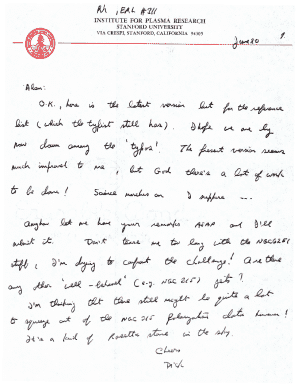 INSTITUTE FOR PLASMA RESEARCH
STANFORD UNIVERSITY
VIA CRESPI, STANFORD, CALIFORNIA 94305
June 20
Alan:
O.K., here is the latest version but for the reference
list (which the typist still has). I hope we are by
now down among the 'typos'. The present version seems
much improved to me, but God there's a lot of work
to be done! Science marches on I suppose ...
Anyhow let me have your remarks ASAP and I'll
submit it. Don't tease me too long with the NGC6251
stuff; I'm dying to confront the challenge! Are there
any other 'well-behaved' (e.g. NGC 315) jets?
I'm thinking that there still might be quite a lot
to squeeze out of the NGC 315 Polarization data however!
It's a kind of Rosetta stone in the sky.
Cheers